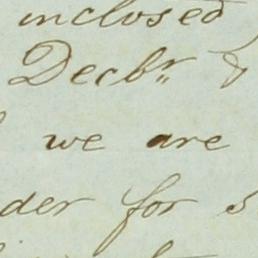 inclosed
Decbr &
we are
der for s